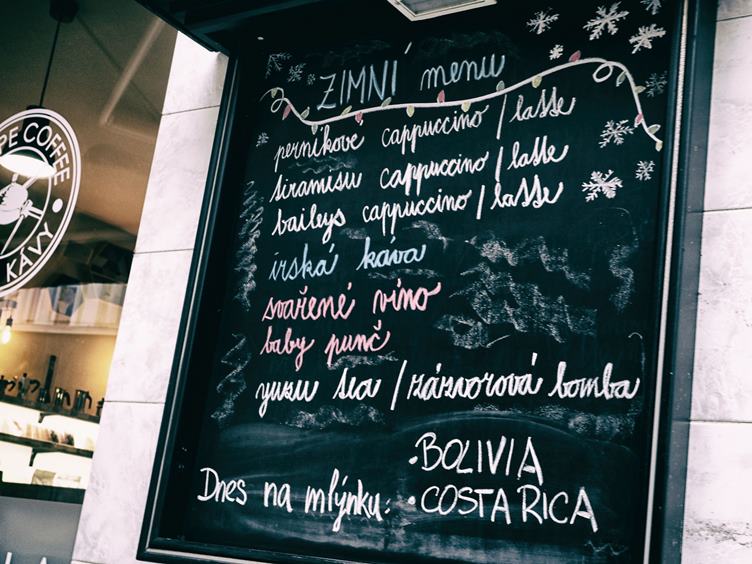 PE COFFEE
KÁVY
ZIMNÍ menu
perníkové cappuccino / latte
tiramisu cappuccino / latte
baileys cappuccino / latte
irská káva
svařené víno
baby punč
yuzu tea / zázvorová bomba
Dnes na mlýnku:
• BOLIVIA
• COSTA RICA